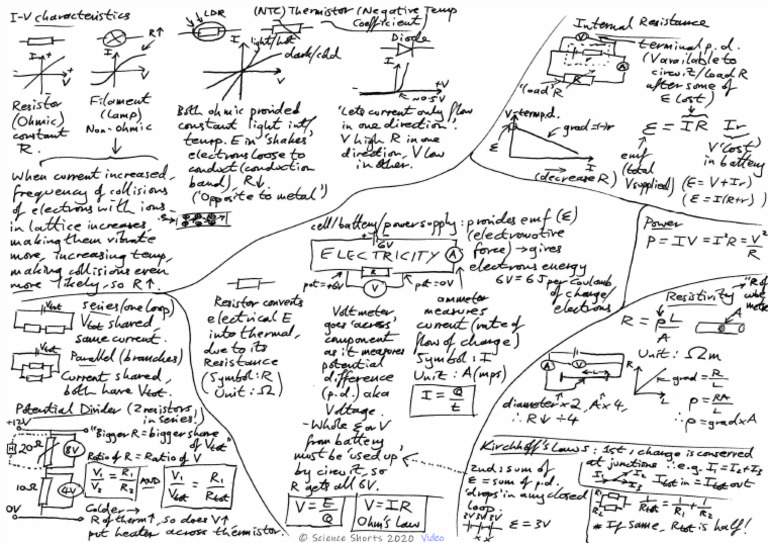 I-V characteristics
R↑
Resistor
(Ohmic)
constant
R.
Filament
(Lamp)
Non-ohmic
When current increased,
frequency of collisions
of electrons with ions
in lattice increases,
making them vibrate
more, increasing temp,
making collisions even
more likely, so R↑.
LDR
(NTC) Thermistor (Negative Temp
Coefficient)
light/hot
dark/cold
Both ohmic provided
constant light int/
temp. E in 'shakes'
electrons loose to
conduct (conduction
band), R↓.
('Opposite to metal')
Diode
I
+V
~0.5V
'Lets current only flow
in one direction'.
V high R in one
direction, V low
in other.
Internal Resistance
terminal p.d.
(V available to
circuit/load R
after some of
E lost)
"load R
V=term p.d.
grad = -r
ε
I
(decrease R)
ε = IR Ir
emf
(total
V supplied)
V 'lost'
in battery
(E = V + Ir)
(E = I(R+r))
Power
P = IV = I²R = V²/R
cell/battery/power supply: provides emf (ε)
(electromotive
force) → gives
electrons energy
6V = 6J per Coulomb
of charge/
electrons
6V
ELECTRICITY
A
R
V
pot=+6V
pot=0V
Resistor converts
electrical E
into thermal,
due to its
Resistance
(Symbol: R
Unit: Ω)
Voltmeter,
goes 'across'
component
as it measures
potential
difference
(p.d.) aka
Voltage.
- Whole ε or V
from battery
must be 'used up'
by circuit, so
R gets all 6V.
V = E/Q
V = IR
Ohm's Law
ammeter
measures
current (rate of
flow of charge)
Symbol: I
Unit: A(mps)
I = Q/t
Resistivity
R = ρL/A
A
Unit: Ωm
R
L
grad = R/L
ρ = RA/L
∴ ρ = grad x A
diameter x 2, A x 4,
∴ R↓ ÷ 4
Vtot
series (one loop)
Vtot shared,
same current.
Vtot
Parallel (branches)
Current shared,
both have Vtot.
Potential Divider (2 resistors
in series)
+12V
"Bigger R = bigger share
of Vtot"
20Ω
8V
Ratio of R = Ratio of V
V₁/V₂ = R₁/R₂ AND V₁/Vtot = R₁/Rtot
10Ω
4V
0V
Colder →
R of therm↑, so does V↑
put heater across thermistor.
Kirchhoff's Laws: 1st: charge is conserved
at junctions ∴ e.g. I₁ = I₂ + I₃
I₁ I₂ I₃
Itot in = Itot out
2nd: sum of
ε = sum of p.d.
'drops' in any closed
loop.
2V 3V 2V
ε = 3V
R₁
R₂
1/Rtot = 1/R₁ + 1/R₂
* If same, Rtot is half!
© Science Shorts 2020 Video